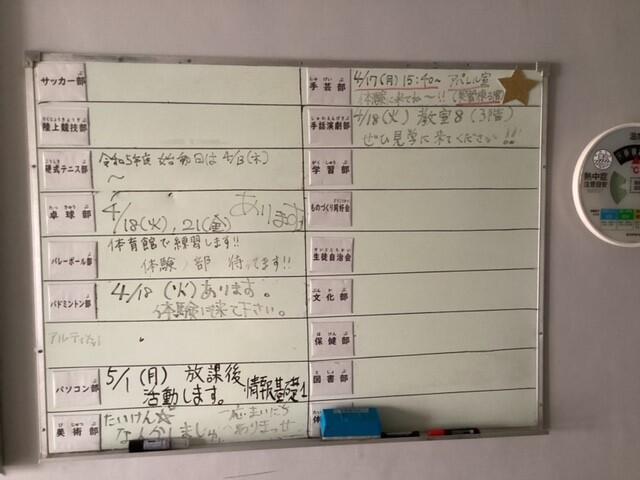 サッカー部
陸上競技部
硬式テニス部
令和5年度 始動日は 4/13(木)
～
卓球部
4/18(火), 21(金) あります
バレーボール部
体育館で練習します!!
体験入部 待ってます!!
バドミントン部
4/18 (火) あります。
体験に来て下さい。
パソコン部
5/1 (月) 放課後
活動します。 情報基礎1
美術部
たいけん
手芸部
4/17(月) 15:40~ アパレル室
体験に来てね~!!
手話演劇部
4/18(火) 教室8 (3階)
ぜひ見学に来てください!!
学習部
ものづくり同好会
生徒自治会
文化部
保健部
図書部
熱中症
注意目安